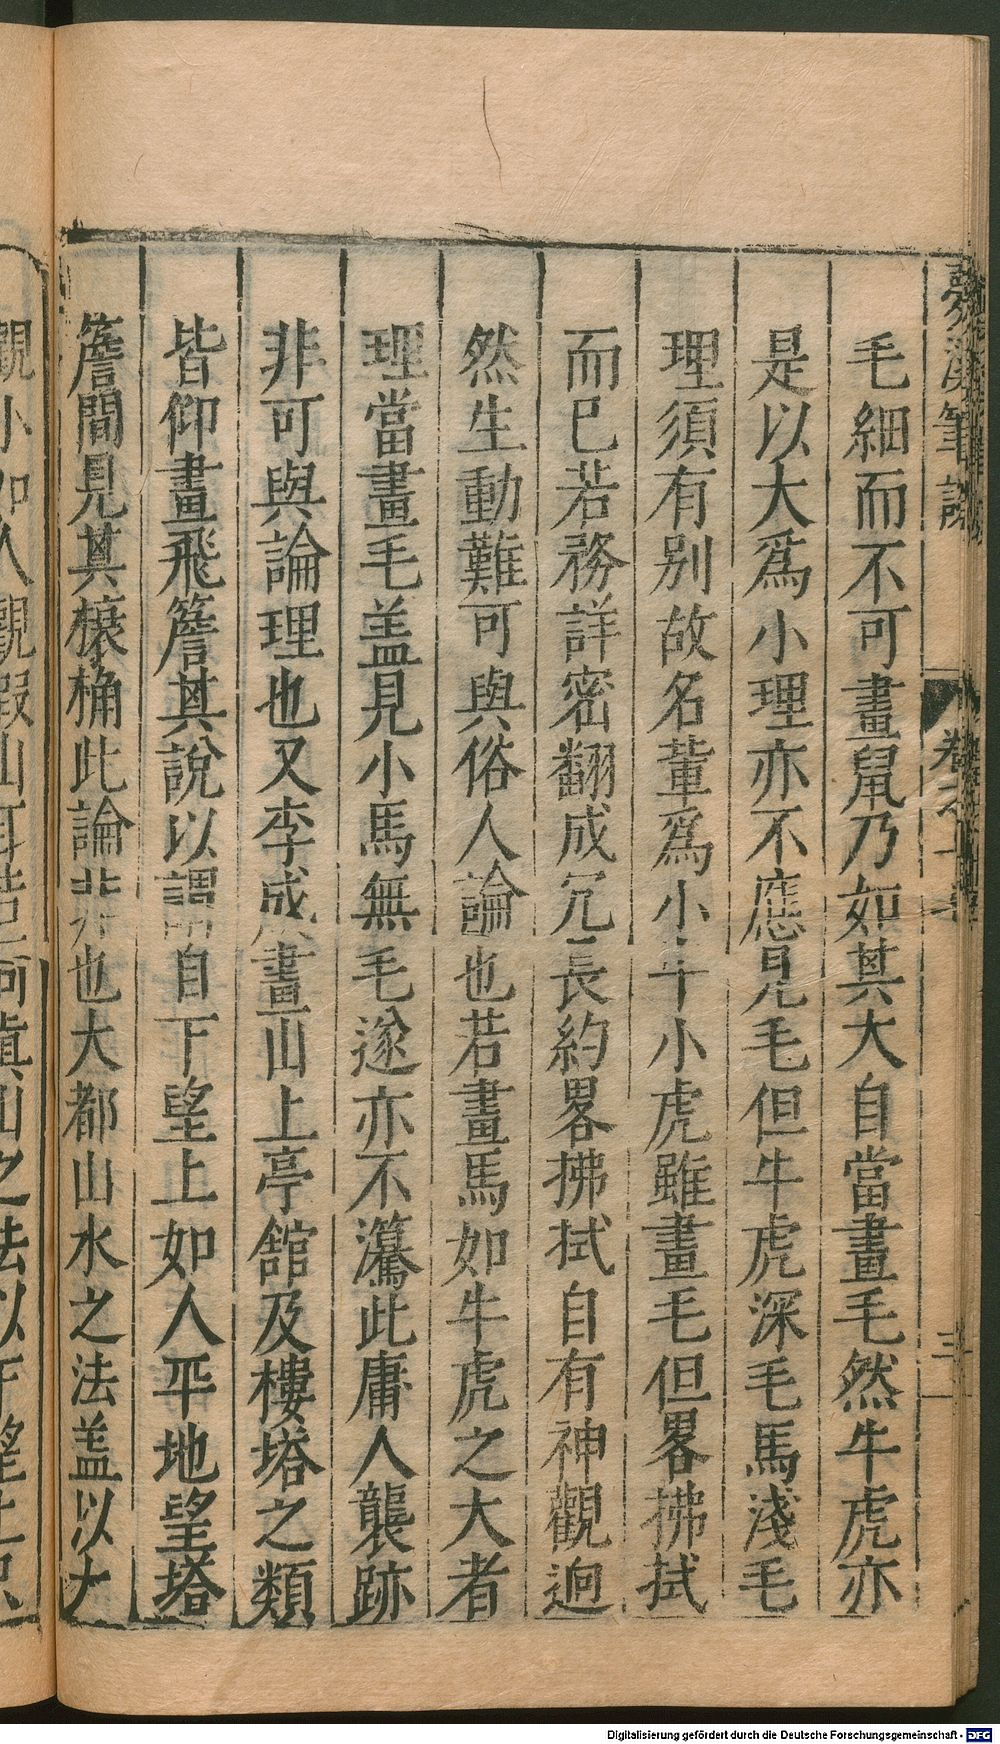 夢溪筆談 卷之十七 三
毛細而不可畫鼠乃如其大自當畫毛然牛虎亦
是以大爲小理亦不應見毛但牛虎深毛馬淺毛
理須有別故名輩爲小牛小虎雖畫毛但畧拂拭
而已若務詳密翻成冗長約畧拂拭自有神觀迥
然生動難可與俗人論也若畫馬如牛虎之大者
理當畫毛盖見小馬無毛遂亦不㩮此庸人襲跡
非可與論理也又李成畫山上亭館及樓塔之類
皆仰畫飛簷其說以謂自下望上如人平地望塔
簷間見其榱桷此論非也大都山水之法盖以大
觀小如人觀假山耳若

Digitalisierung gefördert durch die Deutsche Forschungsgemeinschaft - DFG